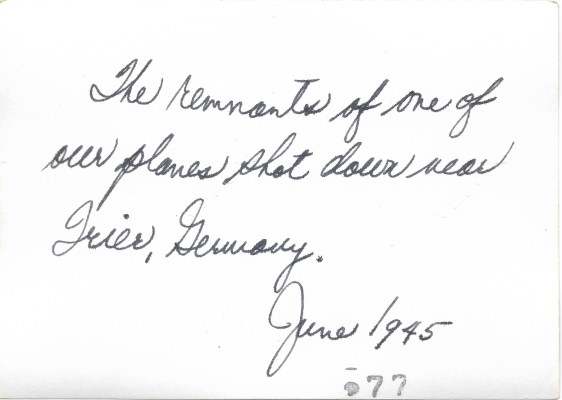 The remnants of one of
our planes shot down near
Trier, Germany.
June 1945
77